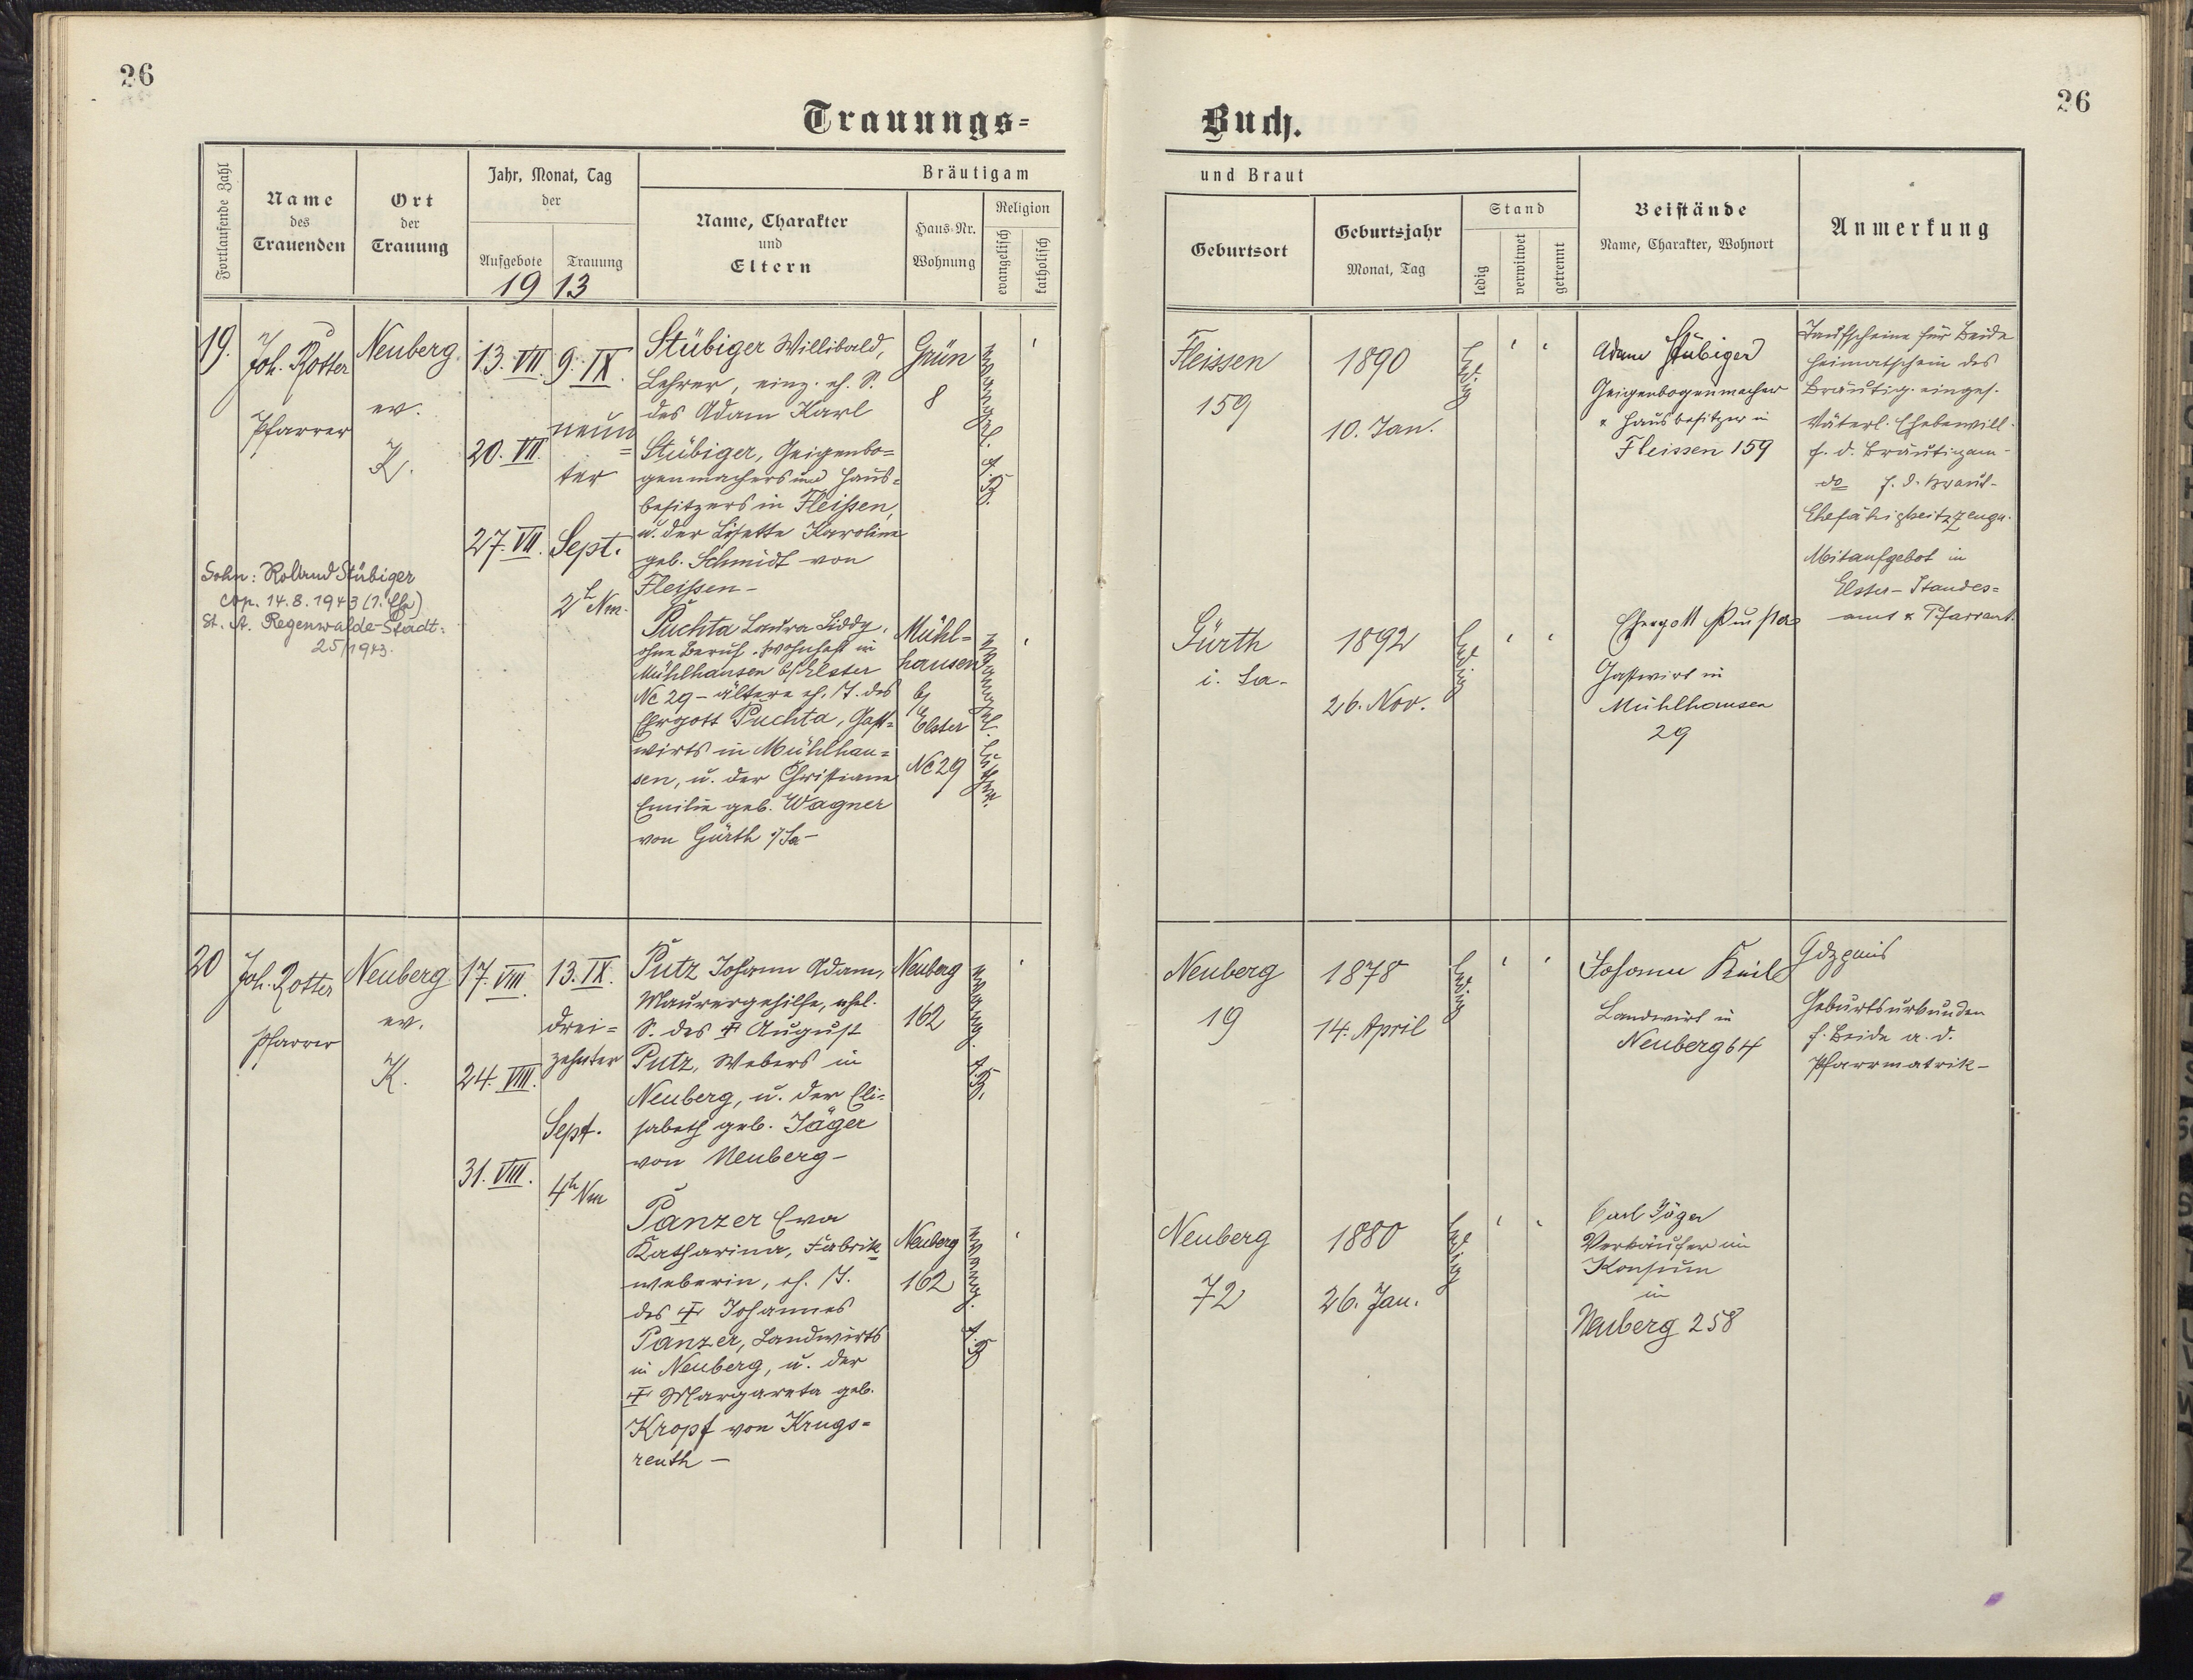 26
Trauungs=
Fortlaufende Zahl
Name
des
Trauenden
Ort
der
Trauung
Jahr, Monat, Tag
der
Aufgebote
Trauung
19 13
Bräutigam
Name, Charakter
und
Eltern
Haus-Nr.
Wohnung
Religion
evangelisch
katholisch
19.
Joh. Rotter
Pfarrer
Neuberg
ev.
K.
13. VII.
20. VII.
27. VII.
9. IX.
neun=
ter
Sept.
2h Nm.
Stübiger Willibald,
Lehrer, einz. eh. S.
des Adam Karl
Stübiger, Geigenbo=
genmachers und Haus=
besitzers in Fleißen,
u. der Lisette Karoline
geb. Schmidt von
Fleißen -
Grün
8
evangel.
A.B.
Sohn: Roland Stübiger
cop. 14.8.1943 (1. Ehe)
St. A. Regenwalde-Stadt:
25/1943.
Puchta Laura Liddy,
ohne Beruf, wohnhaft in
Mühlhausen b/Elster
Nc 29 - ältere eh. T. des
Ehregott Puchta, Gast=
wirts in Mühlhau=
sen, u. der Christiane
Emilie geb. Wagner
von Gürth i/Sa -
Mühl=
hausen
b/
Elster
Nc 29
evangel.
luther.
20
Joh. Rotter
Pfarrer
Neuberg
ev.
K.
17. VIII.
24. VIII.
31. VIII.
13. IX.
drei=
zehnter
Sept.
4h Nm
Putz Johann Adam,
Maurergehilfe, ehel.
S. des † August
Putz, Webers in
Neuberg, u. der Eli=
sabeth geb. Jäger
von Neuberg -
Neuberg
162
evang.
A.B.
Panzer Eva
Katharina, Fabrik=
weberin, eh. T.
des † Johannes
Panzer, Landwirts
in Neuberg, u. der
† Margareta geb.
Kropf von Krugs=
reuth -
Neuberg
162
evang.
A.B
26
Buch.
und Braut
Geburtsort
Geburtsjahr
Monat, Tag
Stand
ledig
verwitwet
getrennt
Beistände
Name, Charakter, Wohnort
Anmerkung
Fleissen
159
1890
10. Jan.
ledig
Adam Stübiger
Geigenbogenmacher
& Hausbesitzer in
Fleissen 159
Taufscheine für Beide
Heimatschein des
Bräutig. einges.
Väterl. Ehebewill.
f. d. Bräutigam -
do f. d. Braut -
Ehefähigkeitszeugn.
Mitaufgebot in
Elster - Standes=
amt & Pfarramt.
Gürth
i. Sa.
1892
26. Nov.
ledig
Ehregott Puchta
Gastwirt in
Mühlhausen
29
Neuberg
19
1878
14. April
ledig
Johann Keil
Landwirt in
Neuberg 64
Geburtsurkunden
f. Beide a. d.
Pfarrmatrik -
Neuberg
72
1880
26. Jan.
ledig
Carl Jäger
Verkäufer im
Konsum
in
Neuberg 258